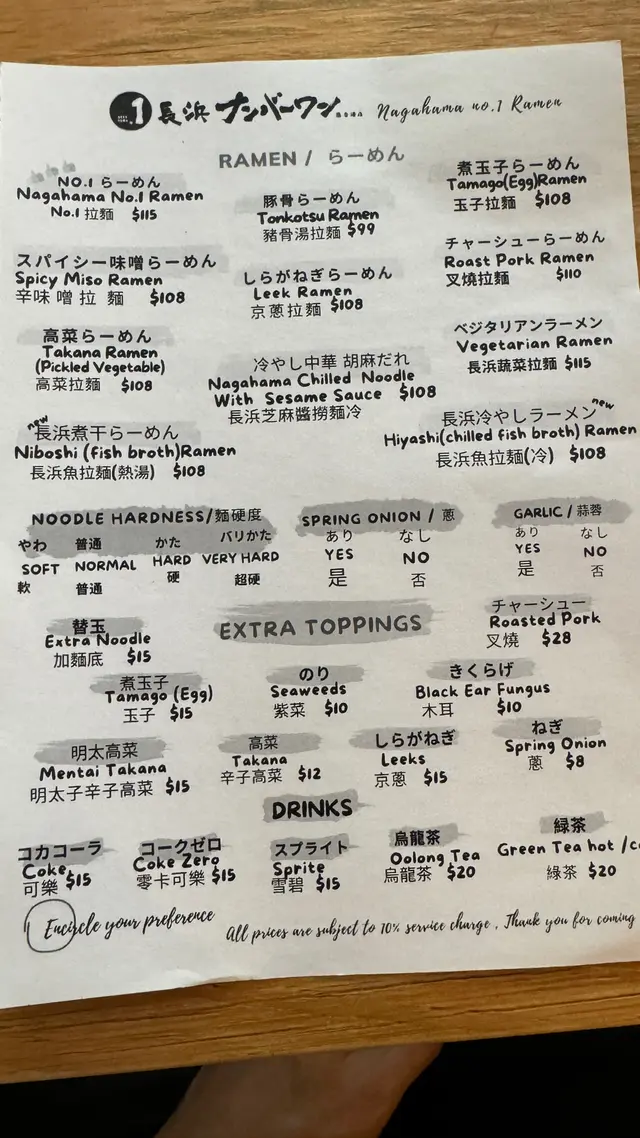 1 長浜 ナンバーワン Nagahama no.1 Ramen
RAMEN / らーめん
NO.1 らーめん
Nagahama No.1 Ramen
No.1 拉麵 $115
豚骨らーめん
Tonkotsu Ramen
豬骨湯拉麵 $99
煮玉子らーめん
Tamago(Egg)Ramen
玉子拉麵 $108
スパイシー味噌らーめん
Spicy Miso Ramen
辛味噌拉麵 $108
しらがねぎらーめん
Leek Ramen
京蔥拉麵 $108
チャーシューらーめん
Roast Pork Ramen
叉燒拉麵 $110
高菜らーめん
Takana Ramen
(Pickled Vegetable)
高菜拉麵 $108
冷やし中華 胡麻だれ
Nagahama Chilled Noodle
With Sesame Sauce $108
長浜芝麻醬撈麵冷
ベジタリアンラーメン
Vegetarian Ramen
長浜蔬菜拉麵 $115
new
長浜煮干らーめん
Niboshi (fish broth)Ramen
長浜魚拉麵(熱湯) $108
長浜冷やしラーメン new
Hiyashi(chilled fish broth) Ramen
長浜魚拉麵(冷) $108
NOODLE HARDNESS/麵硬度
やわ 普通 かた バリかた
SOFT NORMAL HARD VERY HARD
軟 普通 硬 超硬
SPRING ONION / 蔥
あり なし
YES NO
是 否
GARLIC / 蒜蓉
あり なし
YES NO
是 否
EXTRA TOPPINGS
替玉
Extra Noodle
加麵底 $15
チャーシュー
Roasted Pork
叉燒 $28
煮玉子
Tamago (Egg)
玉子 $15
のり
Seaweeds
紫菜 $10
きくらげ
Black Ear Fungus
木耳 $10
明太高菜
Mentai Takana
明太子辛子高菜 $15
高菜
Takana
辛子高菜 $12
しらがねぎ
Leeks
京蔥 $15
ねぎ
Spring Onion
蔥 $8
DRINKS
コカコーラ
Coke
可樂 $15
コークゼロ
Coke Zero
零卡可樂 $15
スプライト
Sprite
雪碧 $15
烏龍茶
Oolong Tea
烏龍茶 $20
緑茶
Green Tea hot /co
綠茶 $20
Encircle your preference
All prices are subject to 10% service charge , Thank you for coming